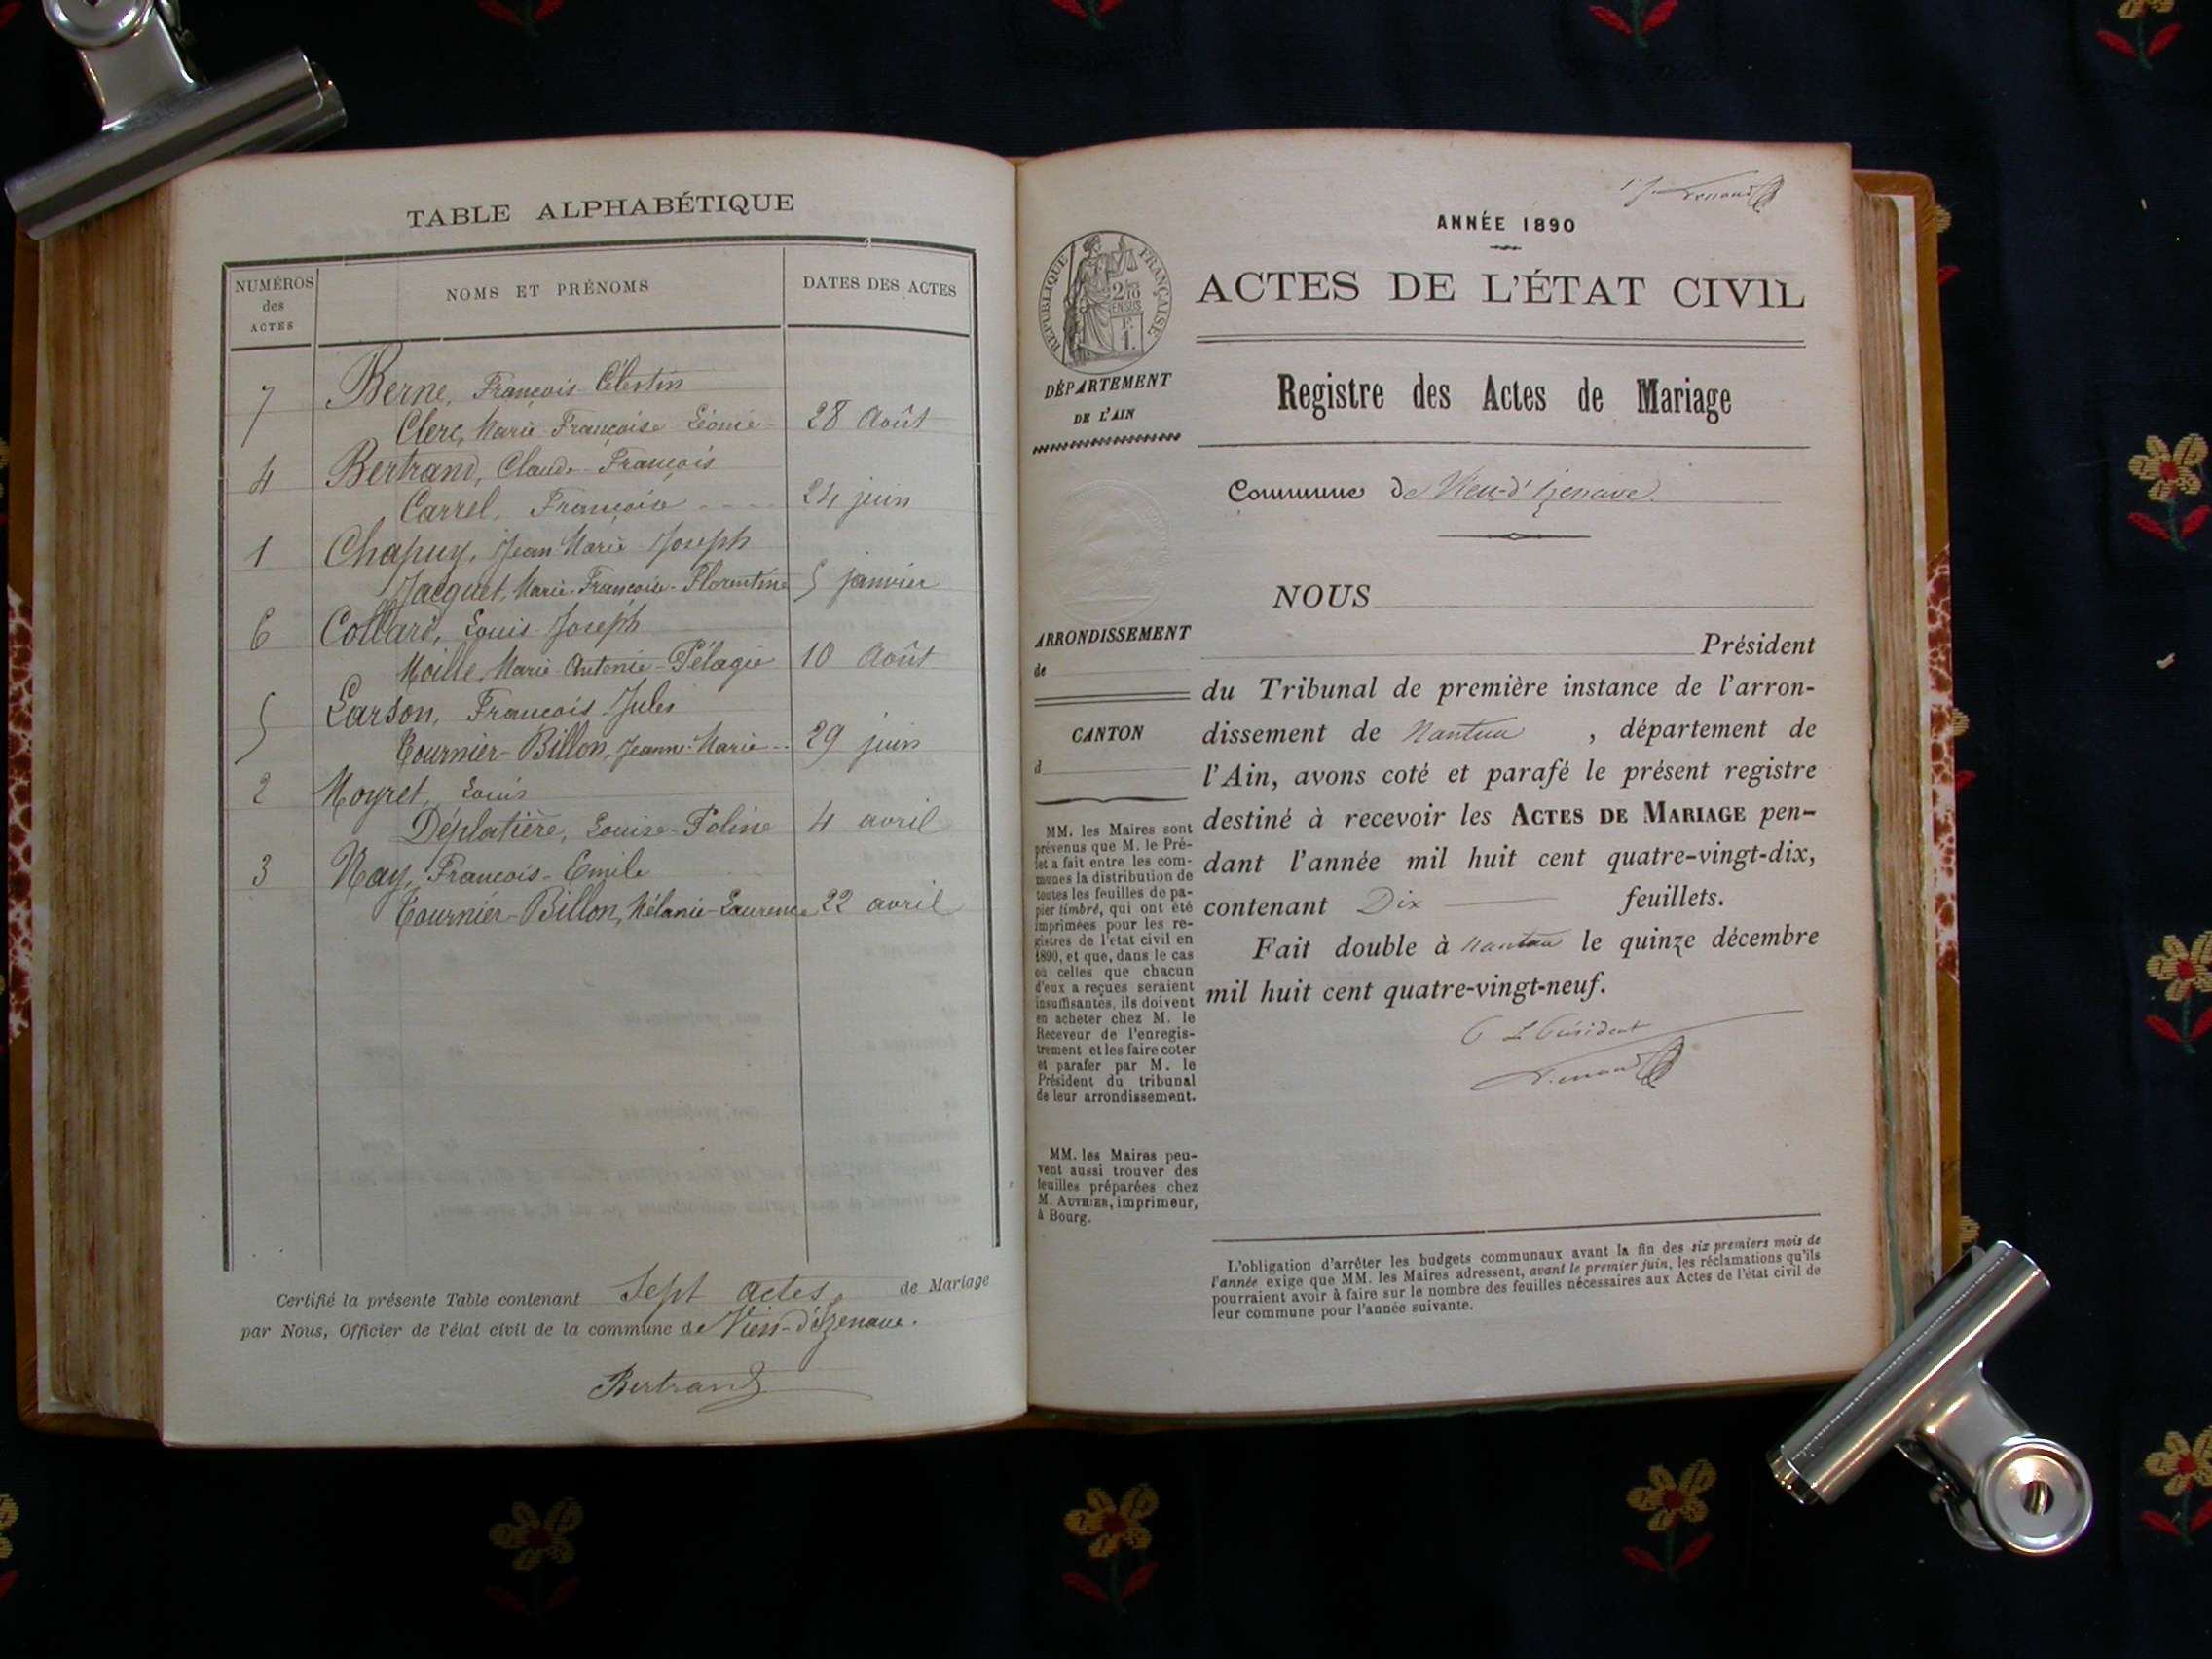 TABLE ALPHABÉTIQUE
NUMÉROS
des
ACTES
NOMS ET PRÉNOMS
DATES DES ACTES
7 Berne, François-Célestin
Clerc, Marie-Françoise Léonie 28 Août
4 Bertrand, Claude-François
Carrel, Françoise 24 juin
1 Chapuy, Jean Marie Joseph
Jacquet, Marie-Françoise-Florentine 5 janvier
6 Collard, Louis-Joseph
Moille, Marie-Antonie-Pélagie 10 Août
5 Larson, François Jules
Tournier-Billon, Jeanne-Marie 29 juin
2 Moyret, Louis
Déplatière, Louise-Poline 4 avril
3 Nay, François-Emile
Tournier-Billon, Mélanie-Laurence 22 avril
Certifié la présente Table contenant Sept actes de Mariage
par Nous, Officier de l'état civil de la commune de Vieu-d'Izenave.
Bertrand
ANNÉE 1890
RÉPUBLIQUE FRANÇAISE
ACTES DE L'ÉTAT CIVIL
DÉPARTEMENT
DE L'AIN
Registre des Actes de Mariage
Commune de Vieu-d'Izenave.
ARRONDISSEMENT
de
CANTON
d
MM. les Maires sont
prévenus que M. le Pré-
fet a fait entre les com-
munes la distribution de
toutes les feuilles de pa-
pier timbré, qui ont été
imprimées pour les re-
gistres de l'etat civil en
1890, et que, dans le cas
où celles que chacun
d'eux a reçues seraient
insuffisantes, ils doivent
en acheter chez M. le
Receveur de l'enregis-
trement et les faire coter
et parafer par M. le
Président du tribunal
de leur arrondissement.
MM. les Maires peu-
vent aussi trouver des
feuilles préparées chez
M. AUTHIER, imprimeur,
à Bourg.
NOUS
Président
du Tribunal de première instance de l'arron-
dissement de Nantua , département de
l'Ain, avons coté et parafé le présent registre
destiné à recevoir les ACTES DE MARIAGE pen-
dant l'année mil huit cent quatre-vingt-dix,
contenant Dix feuillets.
Fait double à Nantua le quinze décembre
mil huit cent quatre-vingt-neuf.
Président
L'obligation d'arrêter les budgets communaux avant la fin des six premiers mois de
l'année exige que MM. les Maires adressent, avant le premier juin, les réclamations qu'ils
pourraient avoir à faire sur le nombre des feuilles nécessaires aux Actes de l'état civil de
leur commune pour l'année suivante.